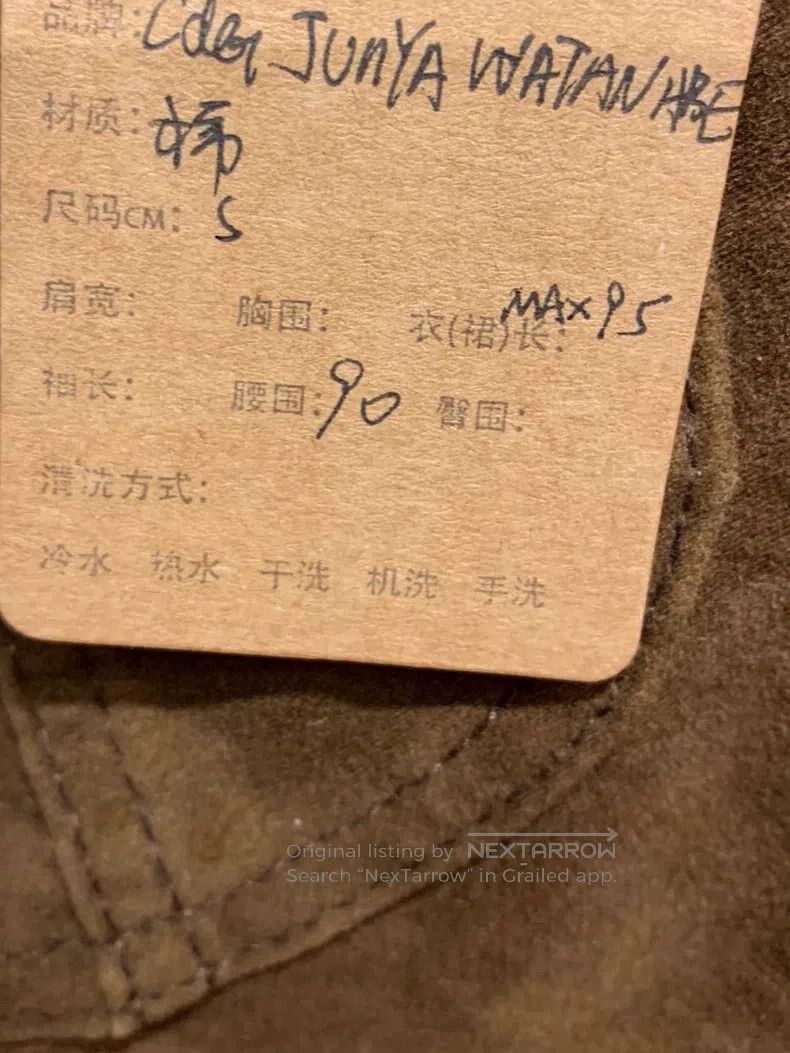 品牌: CdG JUNYA WATANABE
材质: 棉
尺码CM: S
肩宽: 胸围: 衣(裙)长: MAX95
袖长: 腰围: 90 臀围:
清洗方式:
冷水 热水 干洗 机洗 手洗
Original listing by NEXTARROW
Search “NexTarrow” in Grailed app.